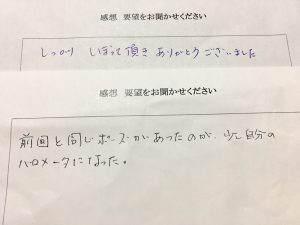 感想　要望をお聞かせください
しっかり しぼって頂き ありがとうございました
感想　要望をお聞かせください
前回と同じポーズがあったのが、少し自分の
バロメータになった。